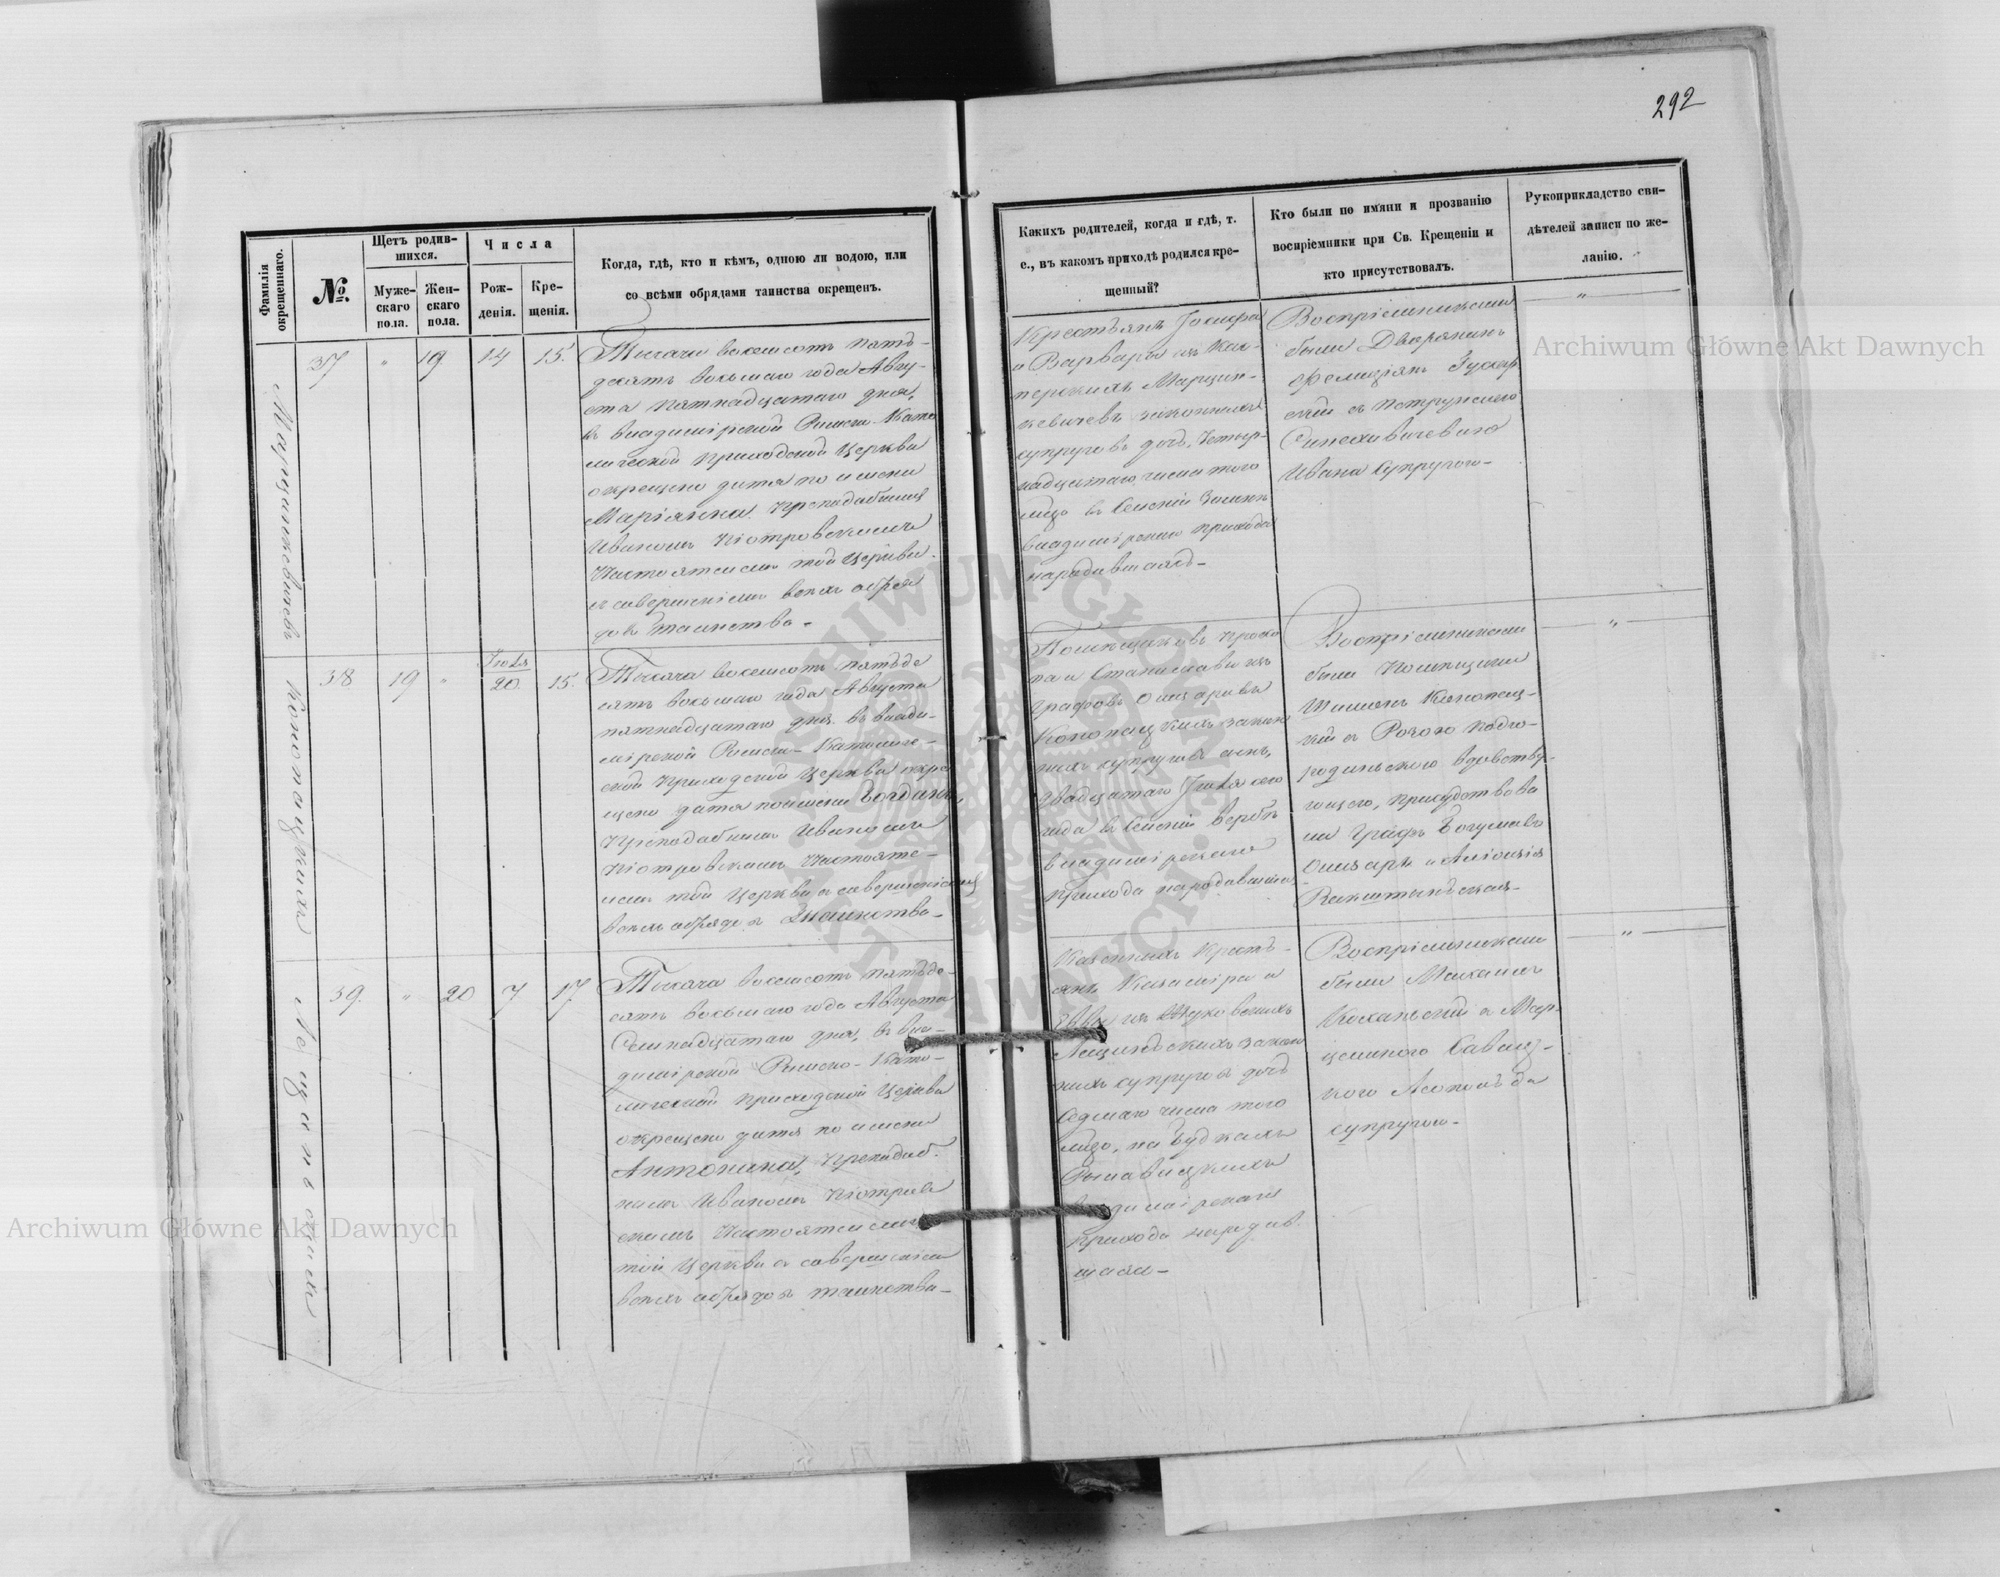 292
Фамилія окрещеннаго.
№.
Щетъ родив-
шихся.
Муже-
скаго
пола.
Жен-
скаго
пола.
Числа
Рож-
денія.
Кре-
щенія.
Когда, гдѣ, кто и кѣмъ, одною ли водою, или
со всѣми обрядами таинства окрещенъ.
Какихъ родителей, когда и гдѣ, т.
е., въ какомъ приходѣ родился кре-
щенный?
Кто были по имяни и прозванію
воспріемники при Св. Крещеніи и
кто присутствовалъ.
Рукоприкладство сви-
дѣтелей записи по же-
ланію.
37 " 19 14 15.
Тысяча восемсотъ пять-
десятъ восьмаго года Авгу-
ста пятнадцатаго дня,
въ Владимірской Римско-Като
лической Приходской Церкви
окрещено дитя по имени
Маріянна, Преподобнымъ
Иваномъ Піотровскимъ
Настоятелемъ той Церкви.
съ совершеніемъ всехъ обря
довъ таинства-
Крестьянъ Іосифа
и Варвары изъ Кас-
перскихъ Марцин-
кевичевъ законныхъ
супруговъ дочь, четыр-
надцатаго числа того
въ Селеніи
Владимірскаго Прихода
народившаяся-
Воспріемниками
были Дворянинъ
Фелиціянъ
скій съ
Ивана Супругою-
"
38 19 " Іюля
20 15.
Тысяча восемсотъ пятьде
сятъ восьмаго года Августа
пятнадцатаго дня въ Влади-
мірской Римско-Католиче-
ской Приходской Церкви окре
щено дитя по имени Богданъ,
Преподобнымъ Иваномъ
Піотровскимъ Настояте-
лемъ той Церкви съ совершеніемъ
всехъ обрядовъ Таинства-
Помещиковъ
и Станиславы изъ
Графовъ Олизаровъ
Конопацкихъ закон
ныхъ супруговъ сынъ,
двадцатаго Іюля сего
года въ Селеніи Вербѣ
Владимірскаго
Прихода народившійся-
Воспріемниками
были Помещики
Шимонъ Конопац-
кій съ Розою Подго-
родинскою вдовству-
ющею, присудствова
ли Графъ Богуславъ
Олизаръ и Алоизія
"
39. " 20 7 17.
Тысяча восемсотъ пятьде-
сятъ восьмаго года Августа
Семнадцатаго дня, въ Вла-
димірской Римско-Като-
лической Приходской Церкви
окрещено дитя по имени
Антонина, Преподоб-
нымъ Иваномъ Піотров
скимъ Настоятелемъ
той Церкви съ совершеніем
всехъ обрядовъ таинства-
Казенныхъ Кресть-
янъ Казиміра и
Евы изъ Жуковскихъ
Лещинскихъ закон
ныхъ супруговъ дочь
Седмаго числа того
на Будкахъ
Владимірскаго
Прихода народив
шаяся-
Воспріемниками
были Михаилъ
Коханскій съ Мар-
целиною Савиц-
кого
супругою-
"
Марцинкевичевъ
Конопацкихъ
Лещинскихъ
Archiwum Główne Akt Dawnych
Archiwum Główne Akt Dawnych
ARCHIWUM GŁÓWNE AKT DAWNYCH